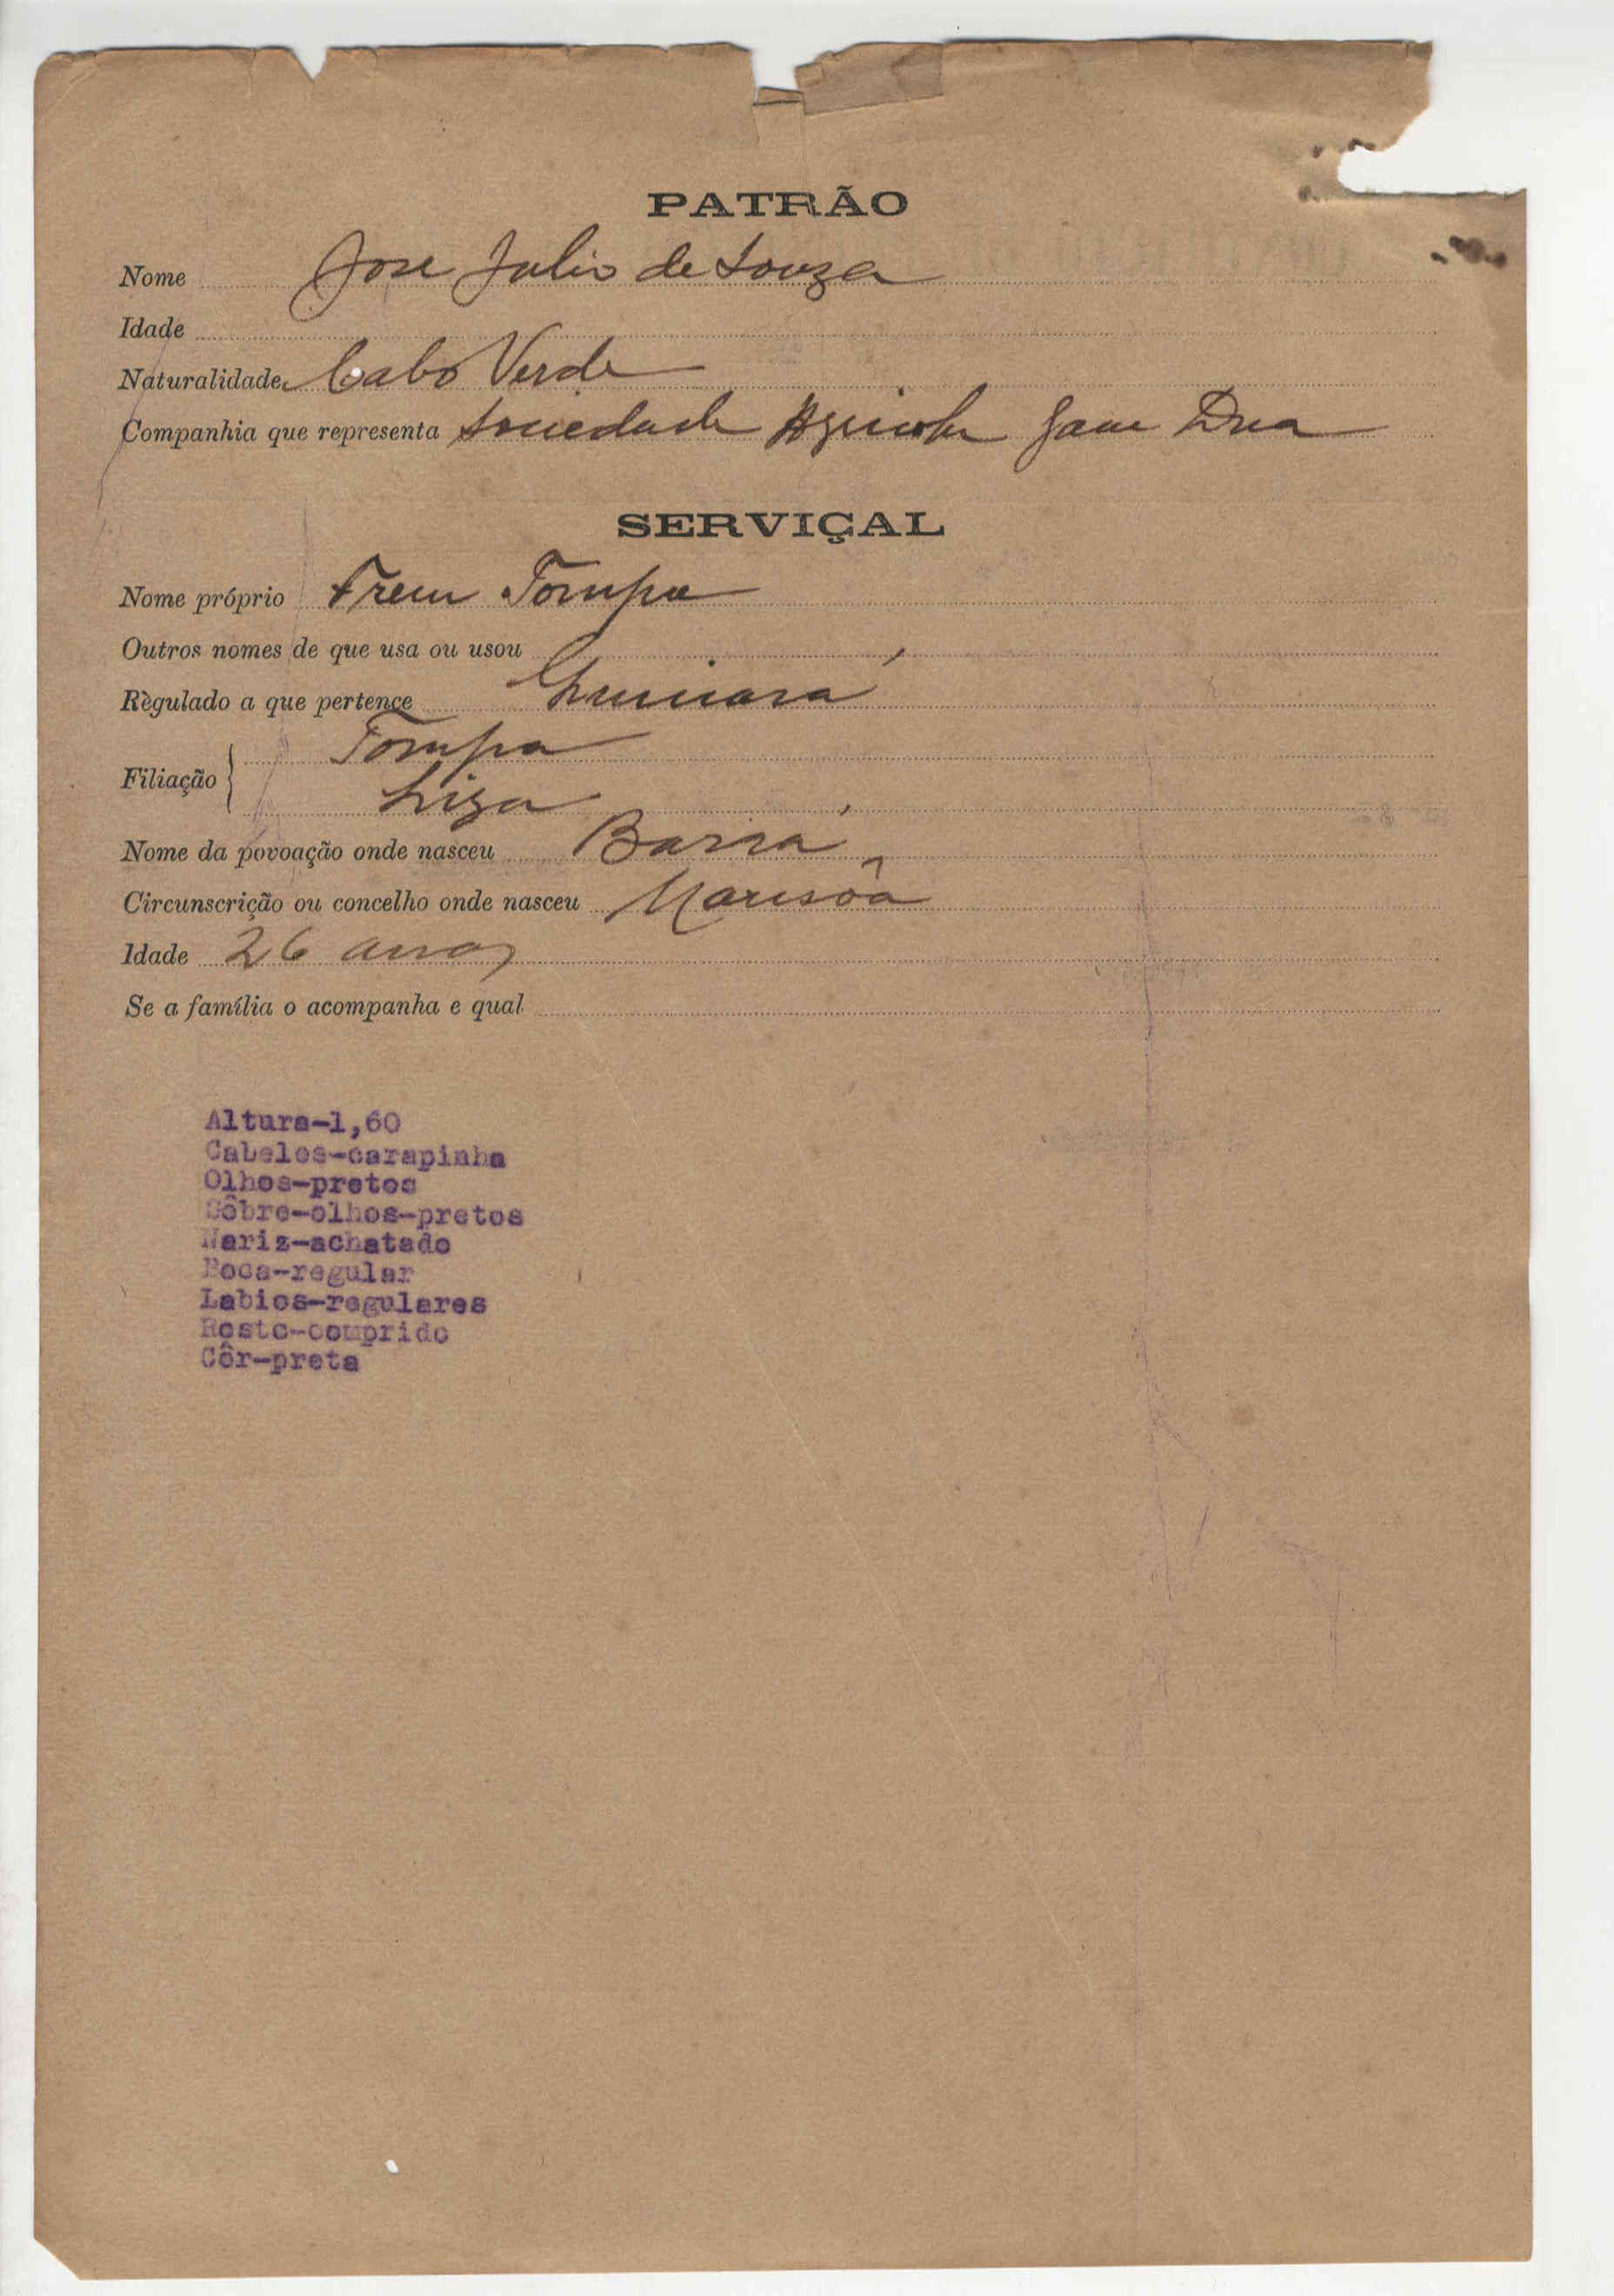 PATRÃO
Nome Jose Julio de Souza
Idade
Naturalidade Cabo Verde
Companhia que representa Sociedade Agricola
SERVIÇAL
Nome próprio Tompa
Outros nomes de que usa ou usou
Règulado a que pertence
Tompa
Filiação
Liza
Nome da povoação onde nasceu Barrá
Circunscrição ou concelho onde nasceu Mansôa
Idade 26 anos
Se a família o acompanha e qual
Altura-1,60
Cabelos-carapinha
Olhos-pretos
Sôbre-olhos-pretos
Nariz-achatado
Boca-regular
Labios-regulares
Rosto-comprido
Côr-preta